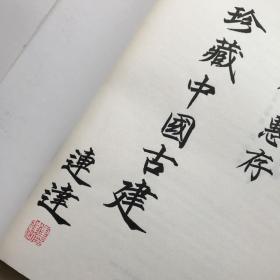 惠存
珍藏中國古建
連達